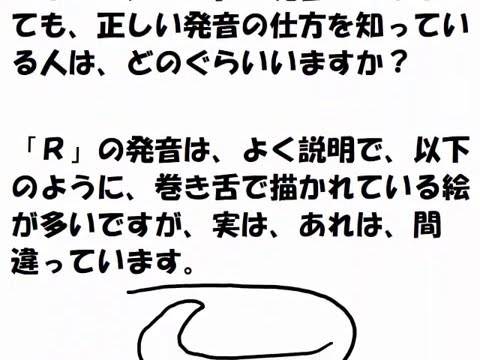 ても、正しい発音の仕方を知ってい
る人は、どのぐらいいますか？
「R」の発音は、よく説明で、以下
のように、巻き舌で描かれている絵
が多いですが、実は、あれは、間
違っています。